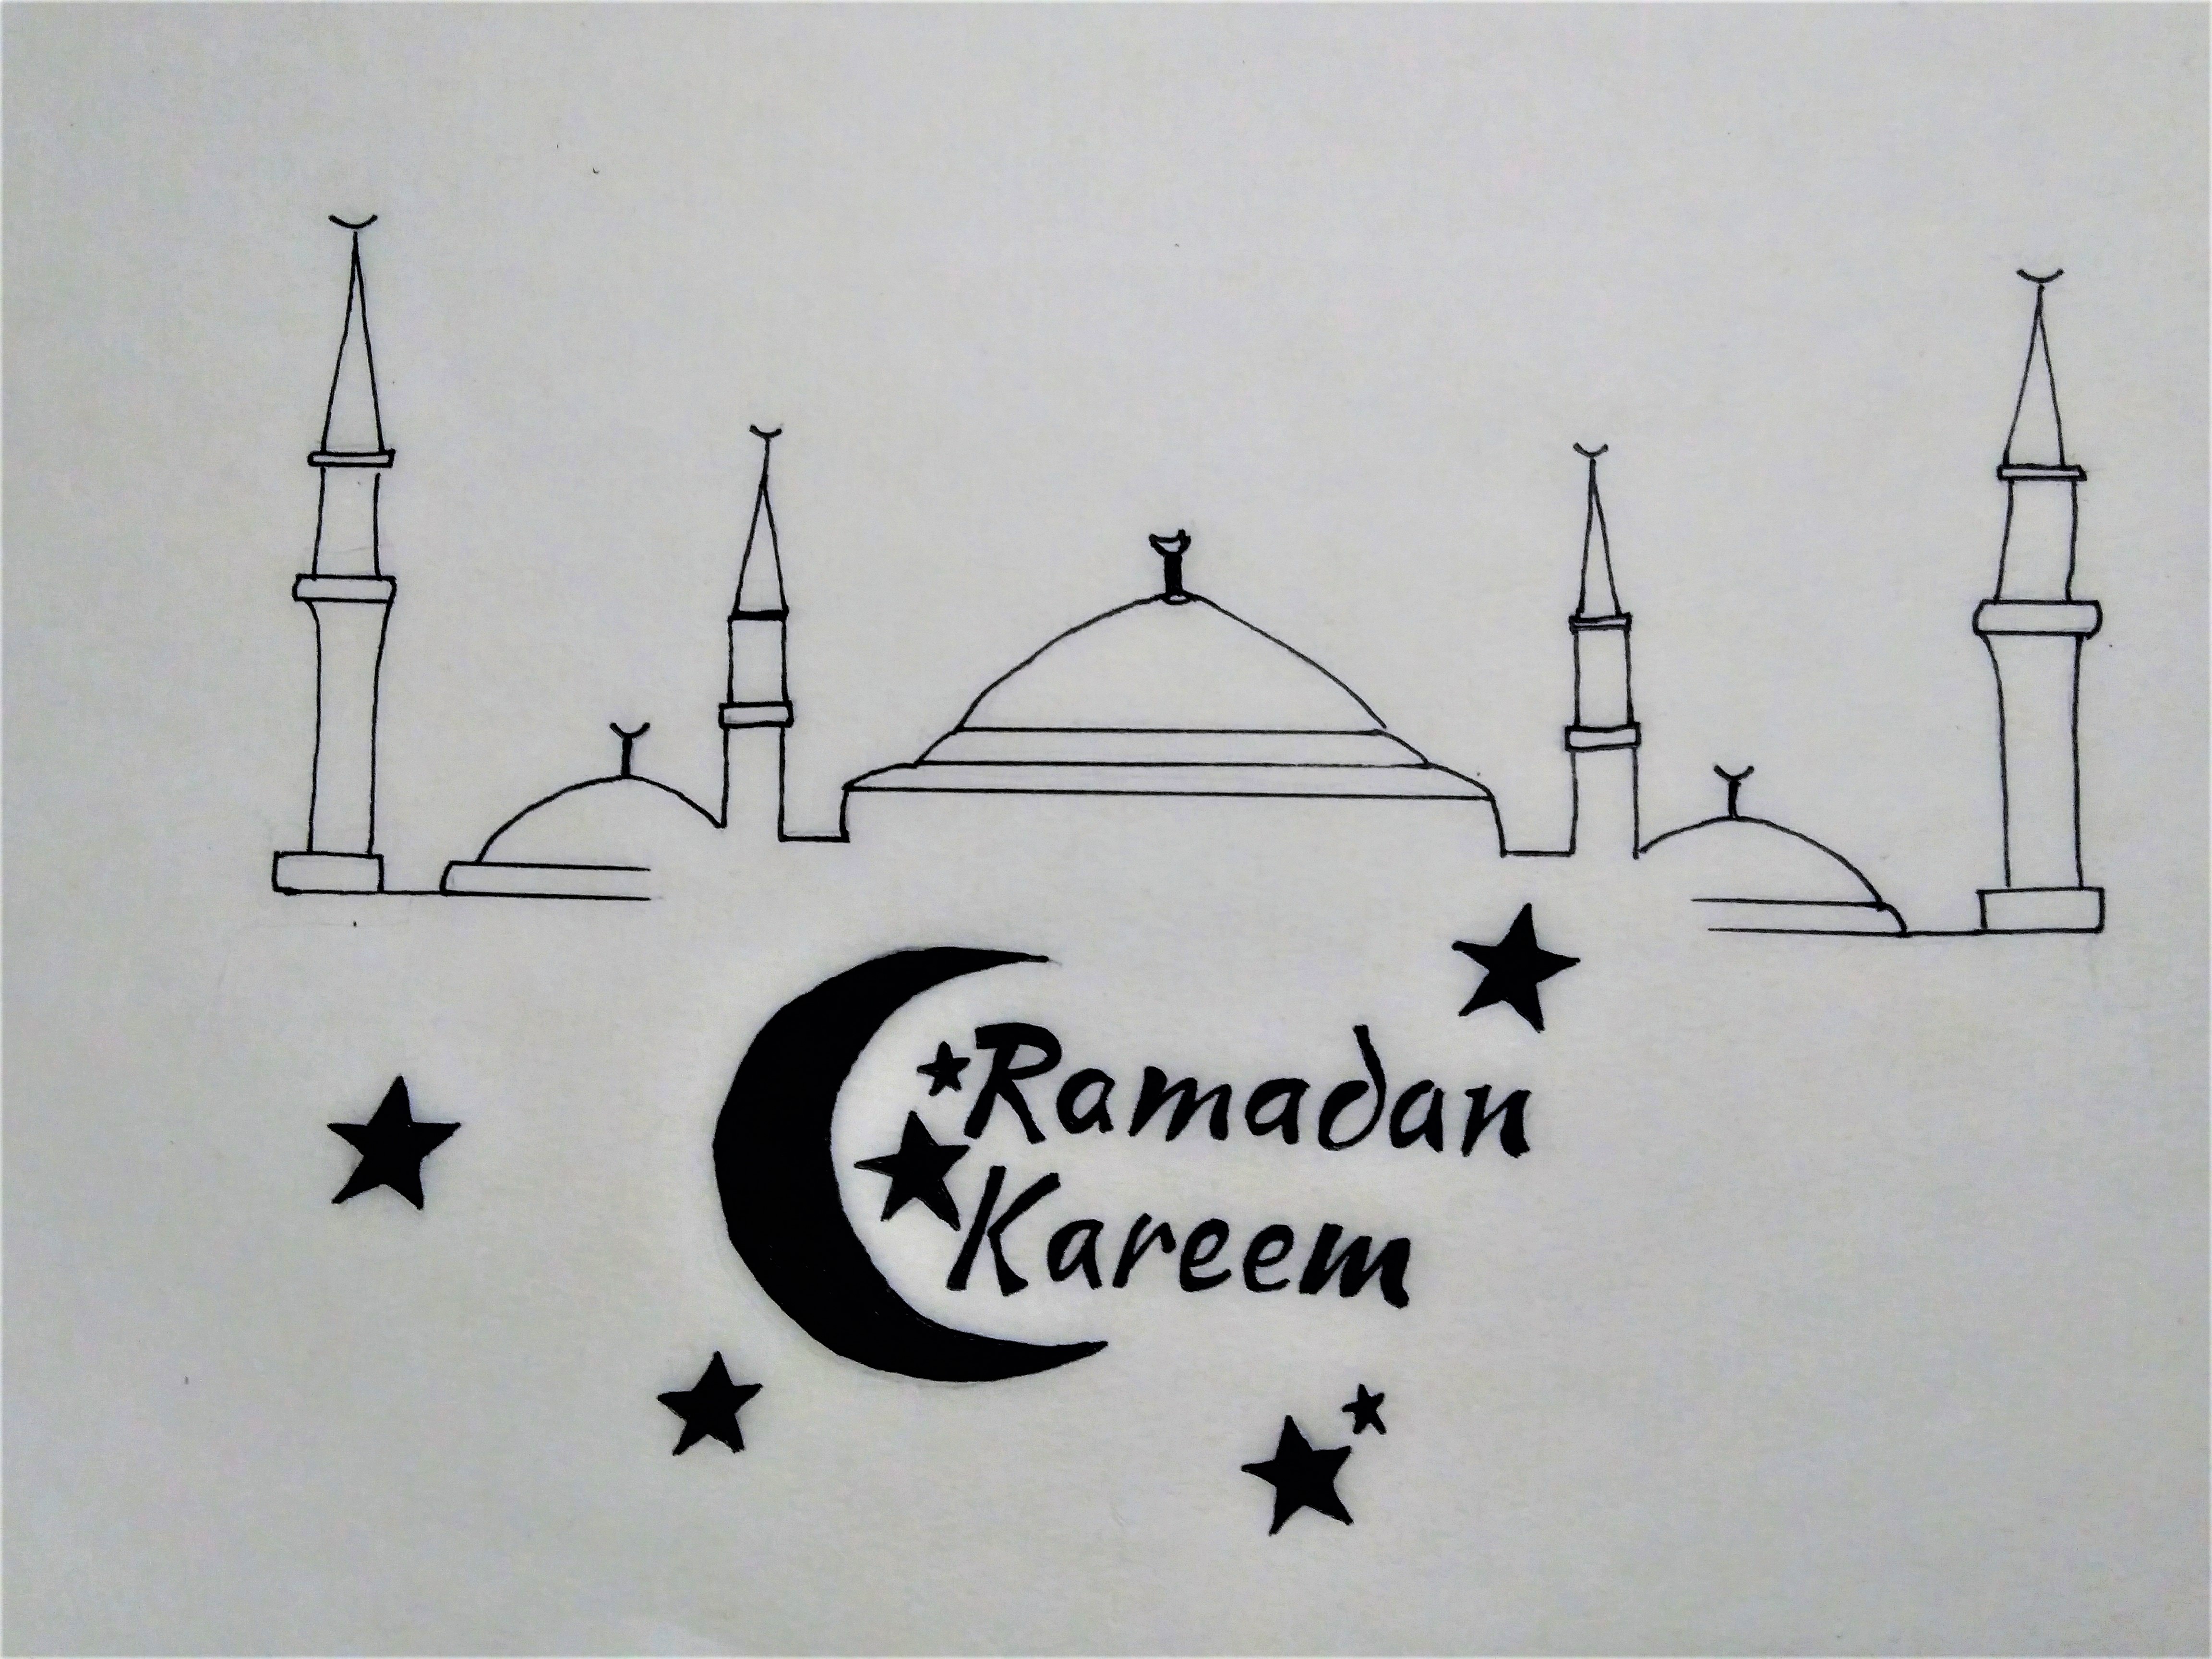 Ramadan
Kareem